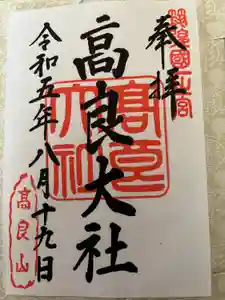 奉拝
筑後國一之宮
高良大社
高良大社
令和五年八月十九日
高良山